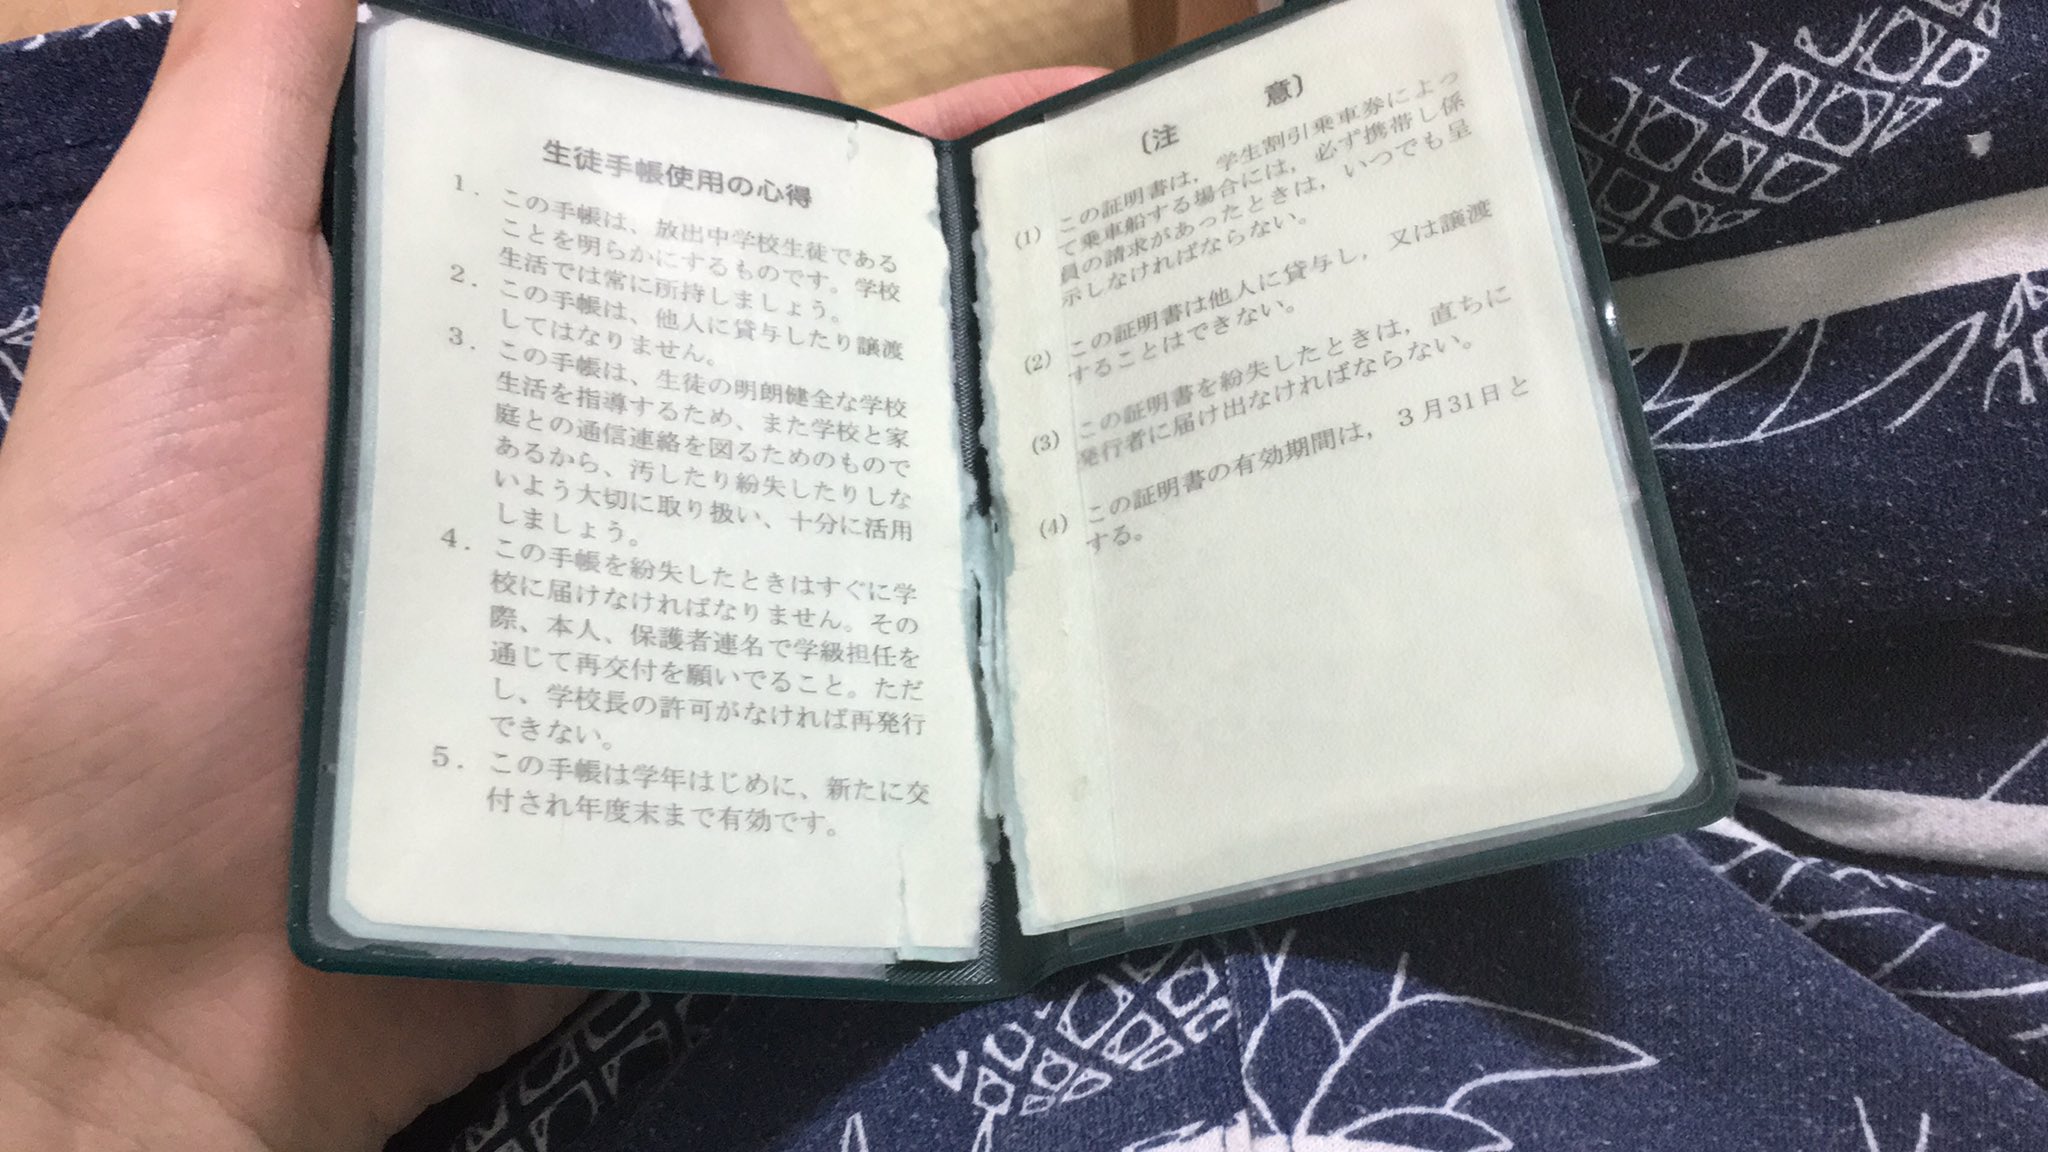 生徒手帳使用の心得
1. この手帳は、放出中学校生徒である
ことを明らかにするものです。学校
生活では常に所持しましょう。
2. この手帳は、他人に貸与したり譲渡
してはなりません。
3. この手帳は、生徒の明朗健全な学校
生活を指導するため、また学校と家
庭との通信連絡を図るためのもので
あるから、汚したり紛失したりしな
いよう大切に取り扱い、十分に活用
しましょう。
4. この手帳を紛失したときはすぐに学
校に届けなければなりません。その
際、本人、保護者連名で学級担任を
通じて再交付を願いでること。ただ
し、学校長の許可がなければ再発行
できない。
5. この手帳は学年はじめに、新たに交
付され年度末まで有効です。
(注 意)
(1) この証明書は，学生割引乗車券によっ
て乗車船する場合には，必ず携帯し係
員の請求があったときは，いつでも呈
示しなければならない。
(2) この証明書は他人に貸与し，又は譲渡
することはできない。
(3) この証明書を紛失したときは，直ちに
発行者に届け出なければならない。
(4) この証明書の有効期間は，3月31日と
する。